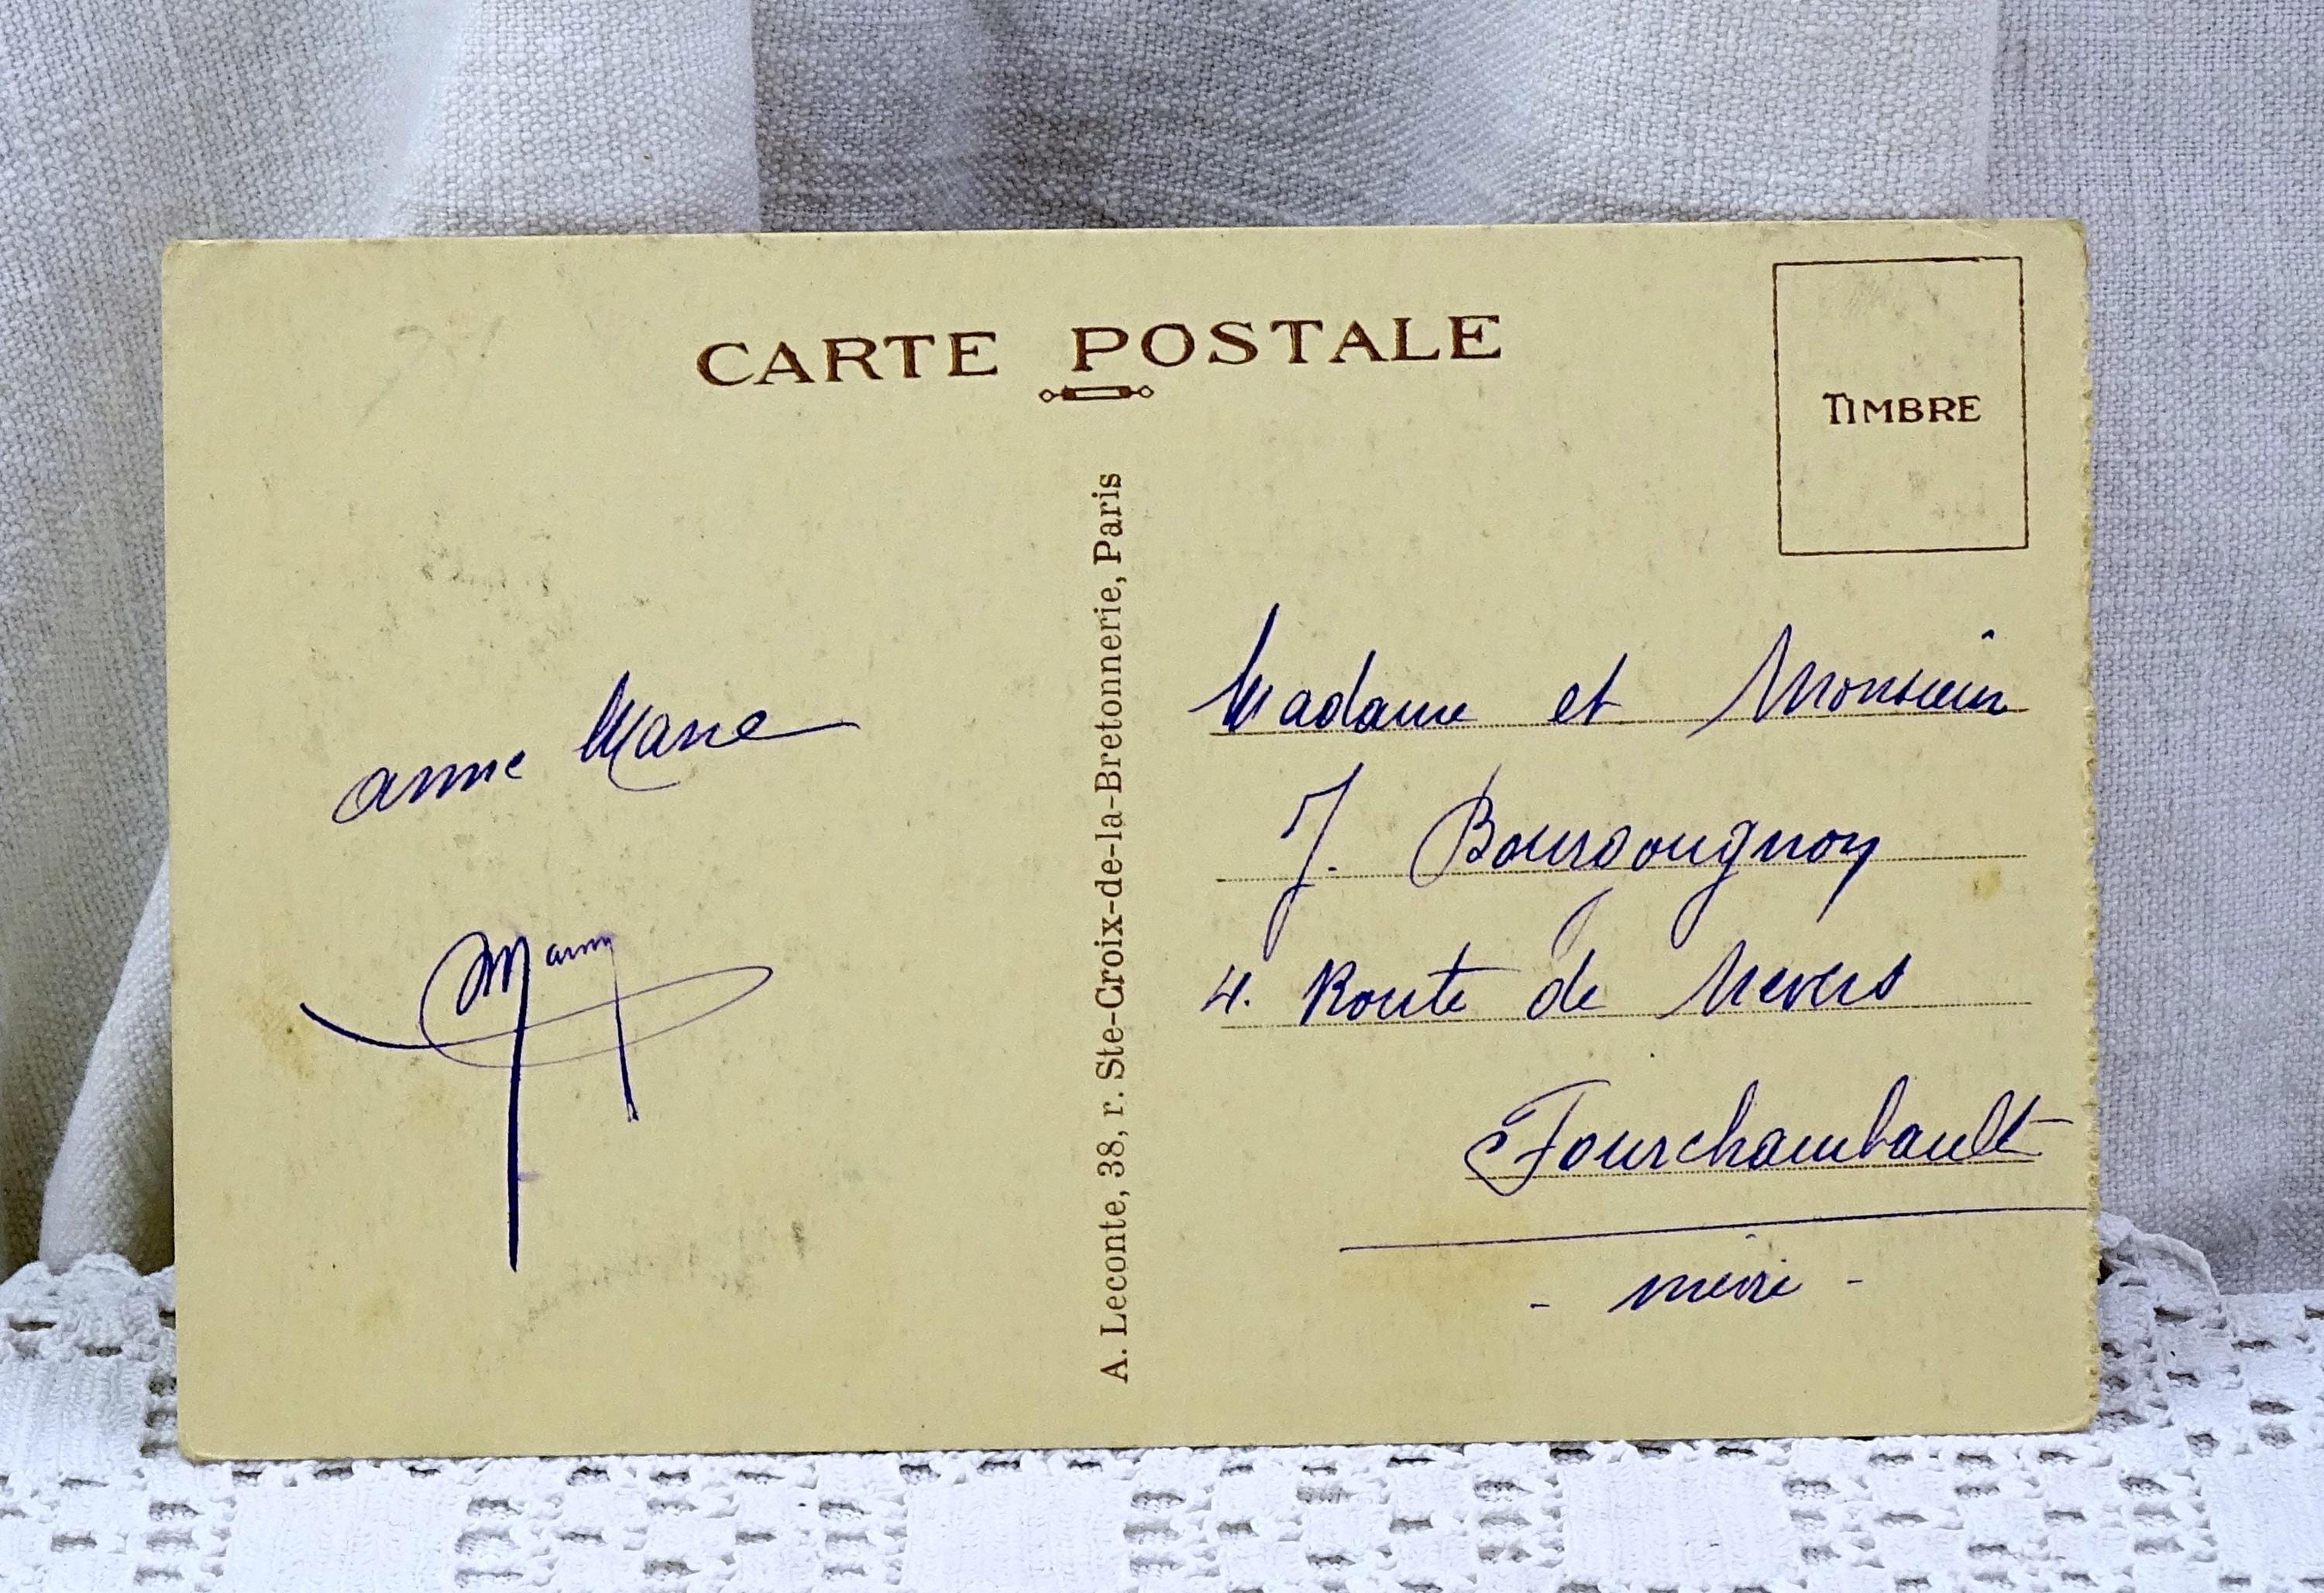 CARTE POSTALE
TIMBRE
anne Marie
Mamy
A. Leconte, 38, r. Ste-Croix-de-la-Bretonnerie, Paris
Madame et Monsieur
J. Bourgougnon
4. Route de Nevers
Fourchambault
- nièvre -